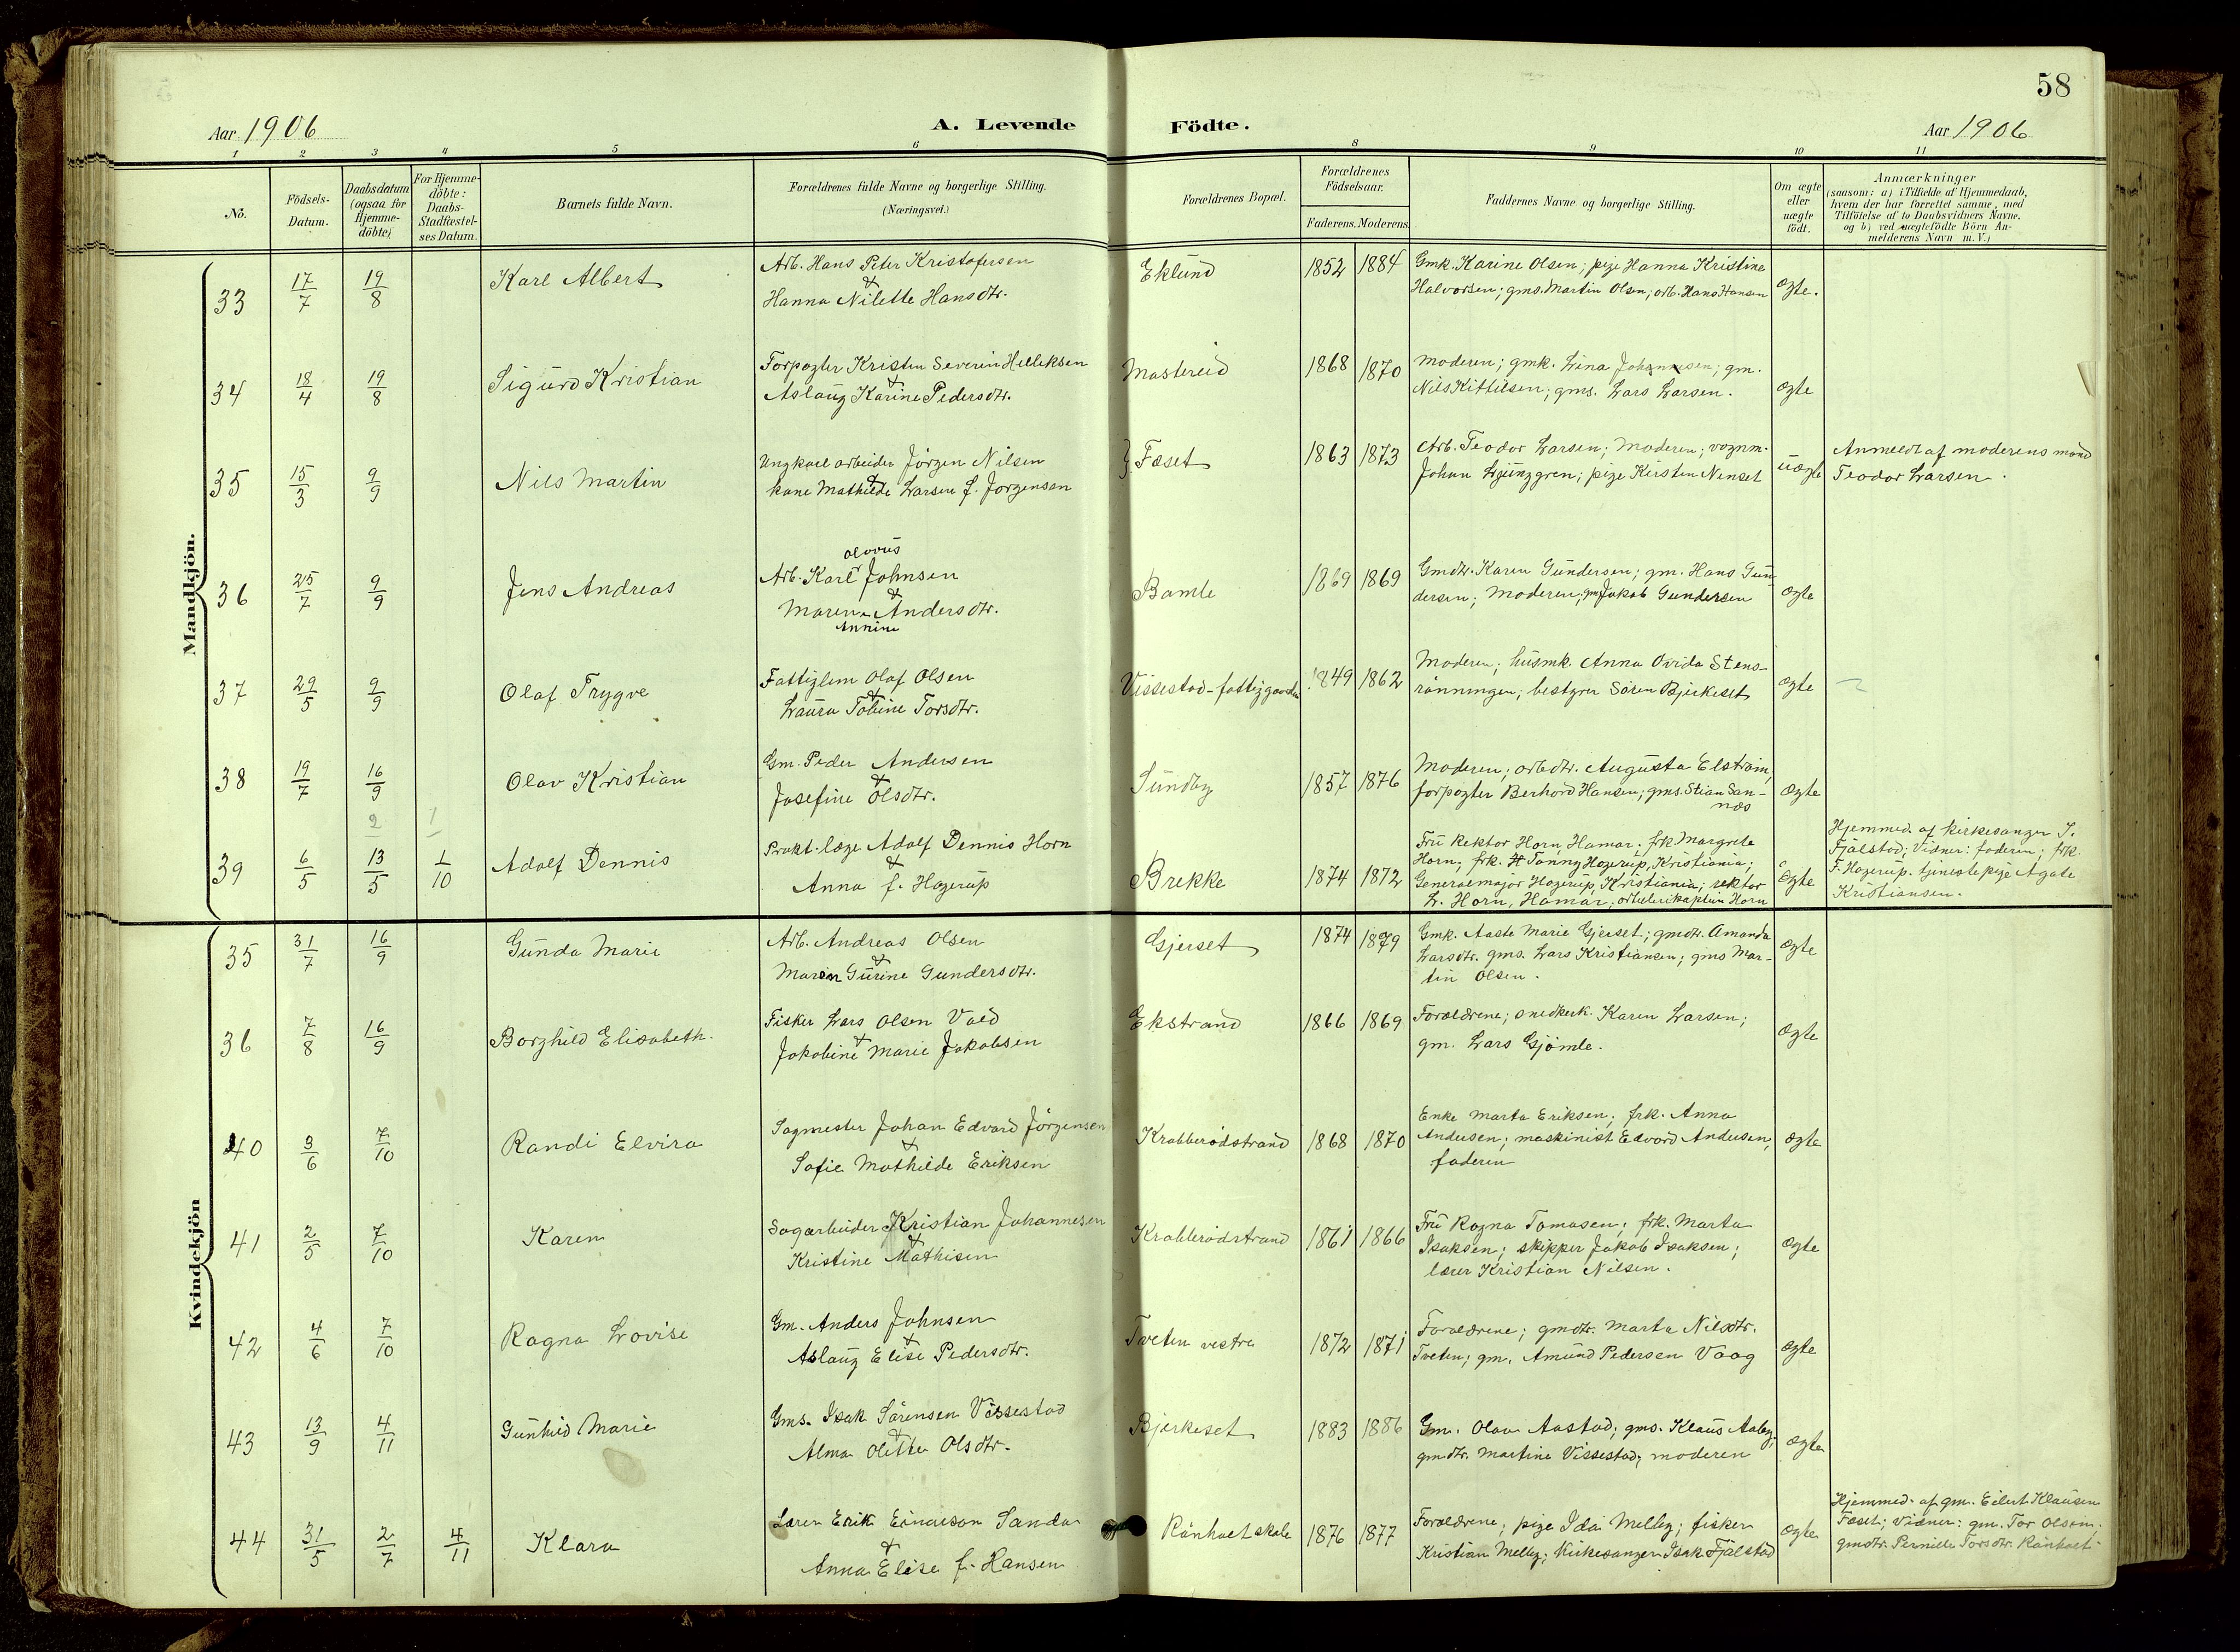 58
Aar 1906
A. Levende Födte.
Aar 1906
1 2 3 4 5 6 8 9 10 11
No.
Födsels-
Datum.
Daabsdatum
(ogsaa for
Hjemme-
döbte)
For Hjemme-
döbte:
Daabs-
Stadfæstel-
ses Datum.
Barnets fulde Navn.
Forældrenes fulde Navne og borgerlige Stilling.
(Næringsvei.)
Forældrenes Bopæl.
Forældrenes
Födselsaar.
Faderens. Moderens.
Faddernes Navne og borgerlige Stilling.
Om ægte
eller
uægte
födt.
Anmærkninger
(saasom: a) i Tilfælde af Hjemmedaab,
hvem der har forrettet samme, med
Tilföielse af to Daabsvidners Navne.
og b) ved uægtefödte Börn An-
melderens Navn m. V.)
Mandkjön.
33 17/7 19/8 Karl Albert
Arb. Hans Peter Kristofersen
&
Hanna Nilette Hansdtr.
Eklund 1852 1884
Gmk. Karine Olsen; pige Hanna Kristine
Halvorsen; gms. Martin Olsen, arb. Hans Hansen
ægte.
34 18/4 19/8 Sigurd Kristian
Forpagter Kristen Severin Helleksen
&
Aslaug Karine Pedersdtr.
Mastereid 1868 1870
Moderen; gmk. Lina Johannesen; gm.
Nils Kittilsen; gms. Lars Larsen.
ægte
35 15/3 9/9 Nils Martin
Ungkarl arbeider Jörgen Nilsen
&
kone Mathilde Larsen f. Jørgensen
} Fæset 1863 1873
Arb. Teodor Larsen; Moderen; vognm.
Johan Ljunggren; pige Kirsten Nenset
uægte
Anmeldt af moderens mand
Teodor Larsen.
36 25/7 9/9 Jens Andreas
Olavus
Arb. Karl Johnsen
&
Maren Andersdtr.
Annine
Bamle 1869 1869
Gmdtr. Karen Gundersen; gm. Hans Gun
dersen; Moderen; gm Jakob Gundersen
ægte
37 29/5 9/9 Olaf Trygve
Fattiglem Olaf Olsen
&
Laura Tobine Torsdtr.
Vissestad-fattiggaard 1849 1862
Moderen; husmk. Anna Ovida Stens-
rönningen; bestyrer Sören Bjerkeset
ægte
38 19/7 16/9 Olav Kristian
Gm. Peder Andersen
&
Josefine Olsdtr.
Sundby 1857 1876
Moderen; arbdtr. Augusta Elström,
forpagter Berhard Hansen; gms. Stian San-
næs
ægte
2 1
39 6/5 13/5 1/10 Adolf Dennis
Prakt. læge Adolf Dennis Horn
&
Anna f. Hagerup
Brekke 1874 1872
Fru Rektor Horn, Hamar; frk Margrete
Horn; frk. Fanny Hagerup, Kristiania;
Generalmajor Hagerup, Kristiania; rektor
L. Horn, Hamar; artillerikaptein Horn
ægte
Hjemmed. af kirkesanger I.
Fjälstad; Vidner: faderen; frk.
F. Hagerup. tjenestepige Agate
Kristiansen.
Kvindekjön
35 31/7 16/9 Gunda Marie
Arb. Andreas Olsen
&
Maren Gurine Gundersdtr.
Gjerset 1874 1879
Gmk. Aaste Marie Gjerset; gmdtr. Amanda
Larsdtr. gms. Lars Kristiansen; gms Mar-
tin Olsen.
ægte
36 7/8 16/9 Borghild Elisabeth.
Fisker Lars Olsen Vold
&
Jakobine Marie Jakobsen
Ekstrand 1866 1869
Forældrene; snedkerk. Karen Larsen;
gm. Lars Gjömle.
ægte
40 3/6 7/10 Randi Elvira
Sagmester Johan Edvard Jörgensen
&
Sofie Mathilde Eriksen
Krabberödstrand 1868 1870
Enke Marta Eriksen; frk. Anna
Andersen; maskinist Edvard Andersen,
faderen
ægte
41 2/5 7/10 Karen
Sagarbeider Kristian Johannesen
&
Kristine Mathisen
Krabberödstrand 1861 1866
Fru Ragna Tomasen; frk. Marta
Isaksen; skipper Jakob Isaksen;
lærer Kristian Nilsen.
ægte
42 4/6 7/10 Ragna Lovise
Gm. Anders Johnsen
&
Aslaug Elise Pedersdtr.
Tveten vestre 1872 1871
Forældrene; gmdtr. Marta Nilsdtr.
Tveten; gm. Amund Pedersen Vaag
ægte
43 13/9 4/11 Gunhild Marie
Gms. Isak Sörensen Vissestad
&
Alma Olette Olsdtr.
Bjerkeset 1883 1886
Gm. Olav Aastad; gms. Klaus Aaby;
gmdtr. Martine Vissestad; moderen
ægte
44 31/5 2/7 4/11 Klara
Lærer Erik Einarson Sanda
&
Anna Elise f. Hansen
Rönholt skole 1876 1877
Forældrene; pige Ida Melby; fisker
Kristian Melby; Kirkesanger Isak Fjälstad
ægte
Hjemmed. af gm. Eilert Klausen
Fæset; vidner: gm. Tor Olsen.
gmdtr. Pernille Torsdtr. Rönholt.